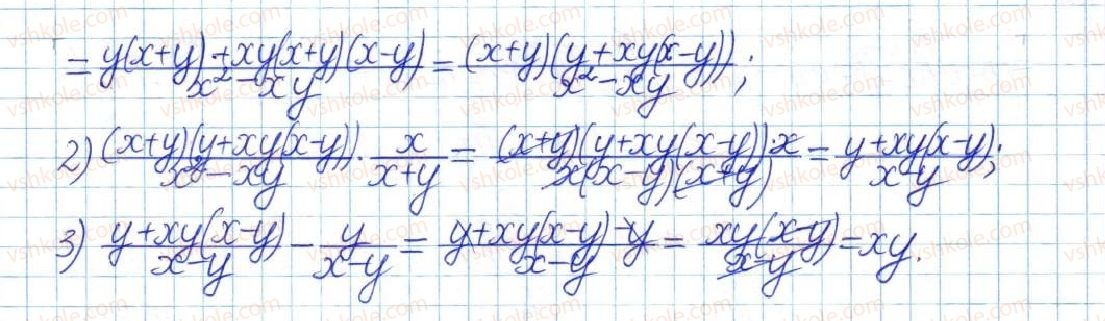 = (y(x+y)+xy(x+y)(x-y))/(x²-xy) = ((x+y)(y+xy(x-y)))/(x²-xy);
2) ((x+y)(y+xy(x-y)))/(x²-xy) · x/(x+y) = ((x+y)(y+xy(x-y))x)/(x(x-y)(x+y)) = (y+xy(x-y))/(x-y);
3) (y+xy(x-y))/(x-y) - y/(x-y) = (y+xy(x-y)-y)/(x-y) = (xy(x-y))/(x-y) = xy.